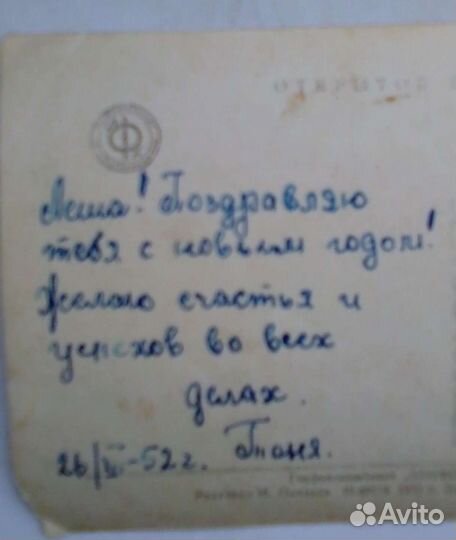 ОТКРЫТОЕ
Ф
Леша! Поздравляю
тебя с новым годом!
Желаю счастья и
успехов во всех
делах.
Таня.
-52 г.
Avito